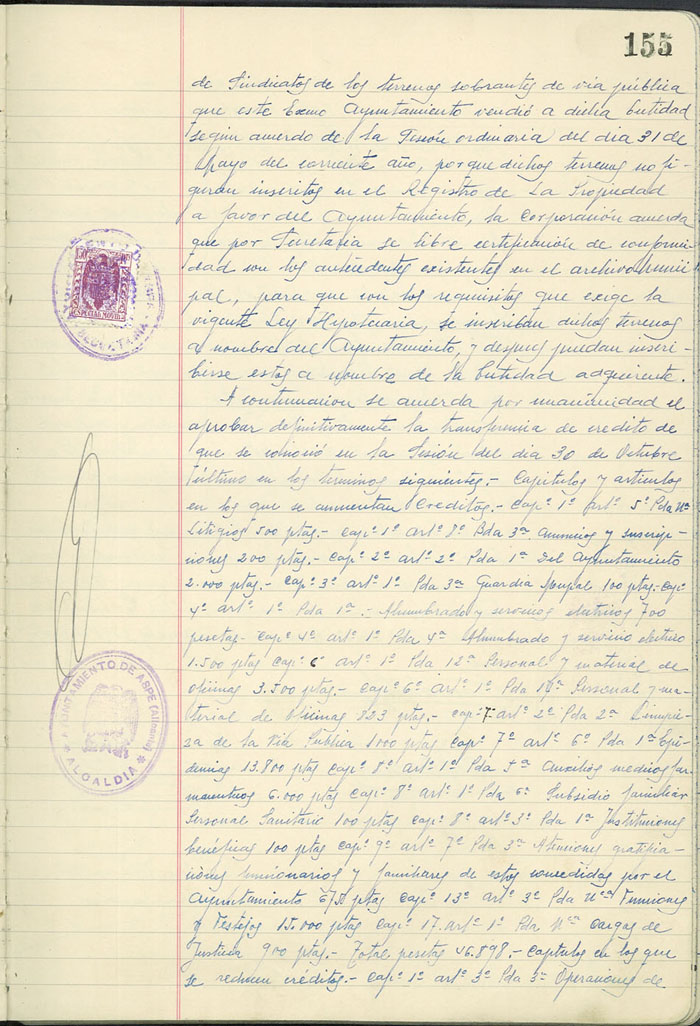 155
de Sindicatos de los terrenos sobrantes de via pública
que este Excmo Ayuntamiento vendió a dicha Entidad
según acuerdo de la Sesión ordinaria del dia 31 de
Mayo del corriente año, porque dichos terrenos no fi-
guran inscritos en el Registro de La Propiedad
a favor del Ayuntamiento, la corporación acuerda
que por Secretaria se libre certificación de conformi-
dad con los antecedentes existentes en el archivo Munici
pal, para que con los requisitos que exige la
vigente Ley Hipotecaria, se inscriban dichos terrenos
a nombre del Ayuntamiento, y despues puedan inscri-
birse estos a nombre de la Entidad adquirente.
A continuacion se acuerda por unanimidad el
aprobar definitivamente la transferencia de credito de
que se conoció en la Sesión del dia 30 de Octubre
último en los terminos siguientes.- Capitulos y articulos
en los que se aumentan Creditos.- Capº 1º Artº 5º Pda Nª
Litigios 500 ptas.- Capº 1º artº 8º Pda 3ª anuncios y suscrip-
ciones 200 ptas.- Capº 2º artº 2º Pda 1ª Del Ayuntamiento
2.000 ptas.- Capº 3º artº 1º Pda 3ª Guardia Mpal 100 ptas.- Capº
4º artº 1º Pda 1ª.- Alumbrado y servicios electricos 700
pesetas.- Capº 4º artº 1º Pda 4ª Alumbrado y servicio electrico
1.500 ptas Capº 6º artº 1º Pda 12ª Personal y material de
oficinas 3.500 ptas.- Capº 6º artº 1º Pda Personal y ma-
terial de Oficinas 823 ptas.- Capº 7º artº 2º Pda 2ª Limpie-
za de la Via Publica 1000 ptas Capº 7º artº 6º Pda 1ª Epi-
demias 13.800 ptas Capº 8º artº 1º Pda 5ª Auxilios medicos far-
maceuticos 6.000 ptas Capº 8º artº 1º Pda 6ª Subsidio familiar
Personal Sanitario 100 ptas Capº 8º artº 3º Pda 1ª Instituciones
benéficas 100 ptas Capº 9º artº 7º Pda 3ª Atenciones gratifica-
ciones funcionarios y familiares de estos concedidas por el
Ayuntamiento 675 ptas Capº 13º artº 3º Pda Nª Funciones
y Festejos 15.000 ptas Capº 17. Artº 1º Pda Nª Cargas de
Justicia 900 ptas.- Total pesetas 46.898.- Capitulos en los que
se reducen créditos.- Capº 1º artº 3º Pda 3ª Operaciones de
ESPECIAL MOVIL
SECRETARIA
AYUNTAMIENTO DE ASPE (Alicante)
ALCALDIA